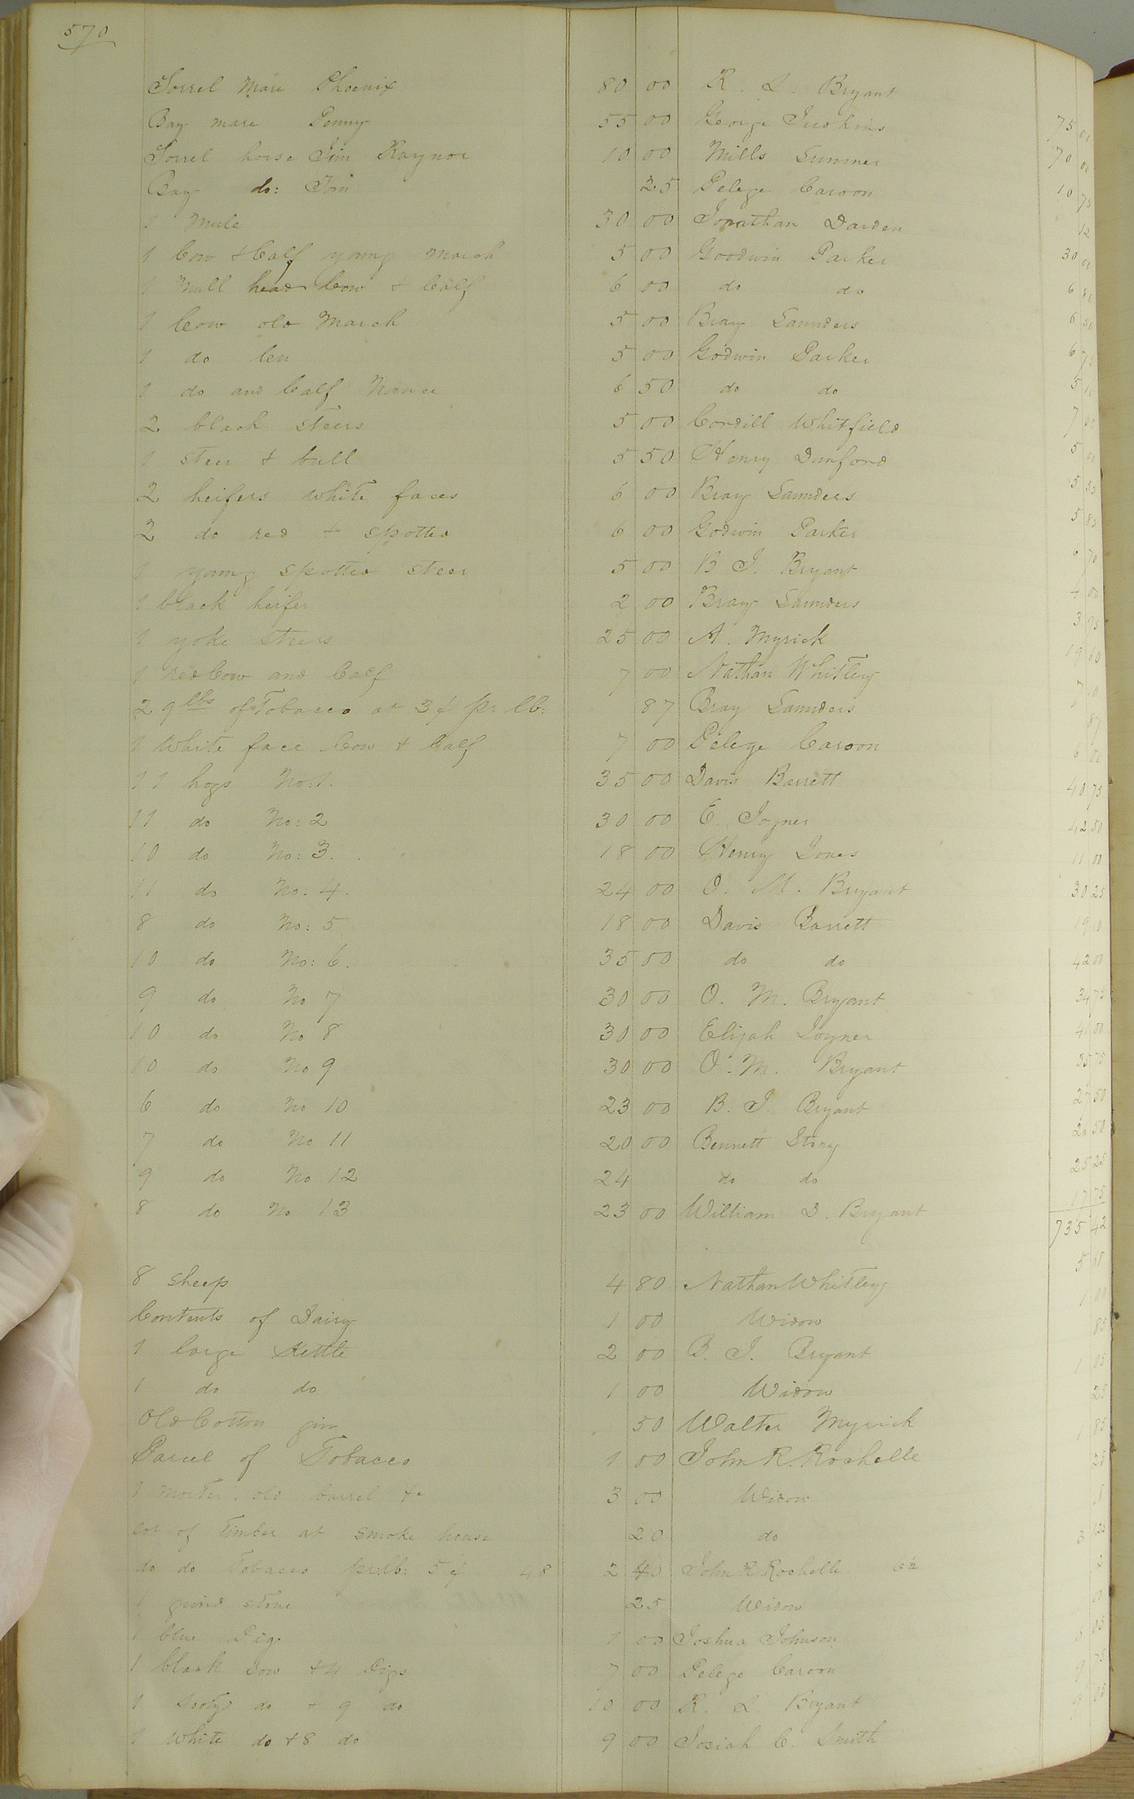 570
Sorrel Mare Phoenix 80 00 R. L. Bryant
Bay mare Penny 55 00 George Judkins 75 00
Sorrel horse Jim Raynor 10 00 Mills Sumner 70 00
Bay do: Tom 25 Pelege Carson 10 75
1 Mule 30 00 Jonathan Darden 12
1 Cow & Calf young March 5 00 Goodwin Parker 30 00
1 Mull head Cow & Calf 6 00 do do 6
1 Cow old March 5 00 Bray Saunders 6
1 do 5 00 Godwin Parker 6
1 do and Calf 6 50 do do 5
2 black steers 5 00 Cordill Whitfield 7
1 steer & bull 5 50 Henry Danford 5
2 heifers white faces 6 00 Bray Saunders 5
2 do red & spotted 6 00 Godwin Parker 5
1 young spotted steer 5 00 B J. Bryant 6 70
1 black heifer 2 00 Bray Saunders 4 00
1 yoke steers 25 00 A. Myrick 3 75
1 Red Cow and Calf 7 00 Nathan Whitley 19
29 lbs of Tobacco at 3¢ pr. lb: 87 Bray Saunders
1 White face Cow & Calf 7 00 Pelege Carson 87
11 hogs No: 1. 35 00 Davis Barrett 40 75
11 do No: 2 30 00 E. Joyner 42 50
10 do No: 3. 18 00 Henry Jones 11 00
11 do No: 4. 24 00 O. M. Bryant 30 25
8 do No: 5 18 00 Davis Barrett 19
10 do No: 6. 35 50 do do 42 00
9 do No 7 30 00 O. M. Bryant 34 75
10 do No 8 30 00 Elijah Joyner
10 do No 9 30 00 O. M. Bryant
6 do No 10 23 00 B. J. Bryant
7 do No 11 20 00 Bennett Story
9 do No 12 24 do do 25 25
8 do No 13 23 00 William D. Bryant 17 75
735 42
8 sheep 4 80 Nathan Whitley
Contents of Dairy 1 00 Widow 85
1 large kettle 2 00 B. J. Bryant
1 do do 1 00 Widow 25
Old Cotton gin 50 Walter Myrick 1 85
Parcel of Tobacco 1 00 John R. Rochelle
1 old barrel &c 3 00 Widow
Lot of timber at smoke house 20 do
do do Tobacco pr. lb. 5¢ 48 2 40 John R Rochelle
1 grind stone 25 Widow
1 blue Pig 1 00 Joshua Johnson
1 black Sow & 4 Pigs 7 00 Pelege Carson
1 do & 9 do 10 00 R. L. Bryant
1 White do & 8 do 9 00 Josiah C. Smith